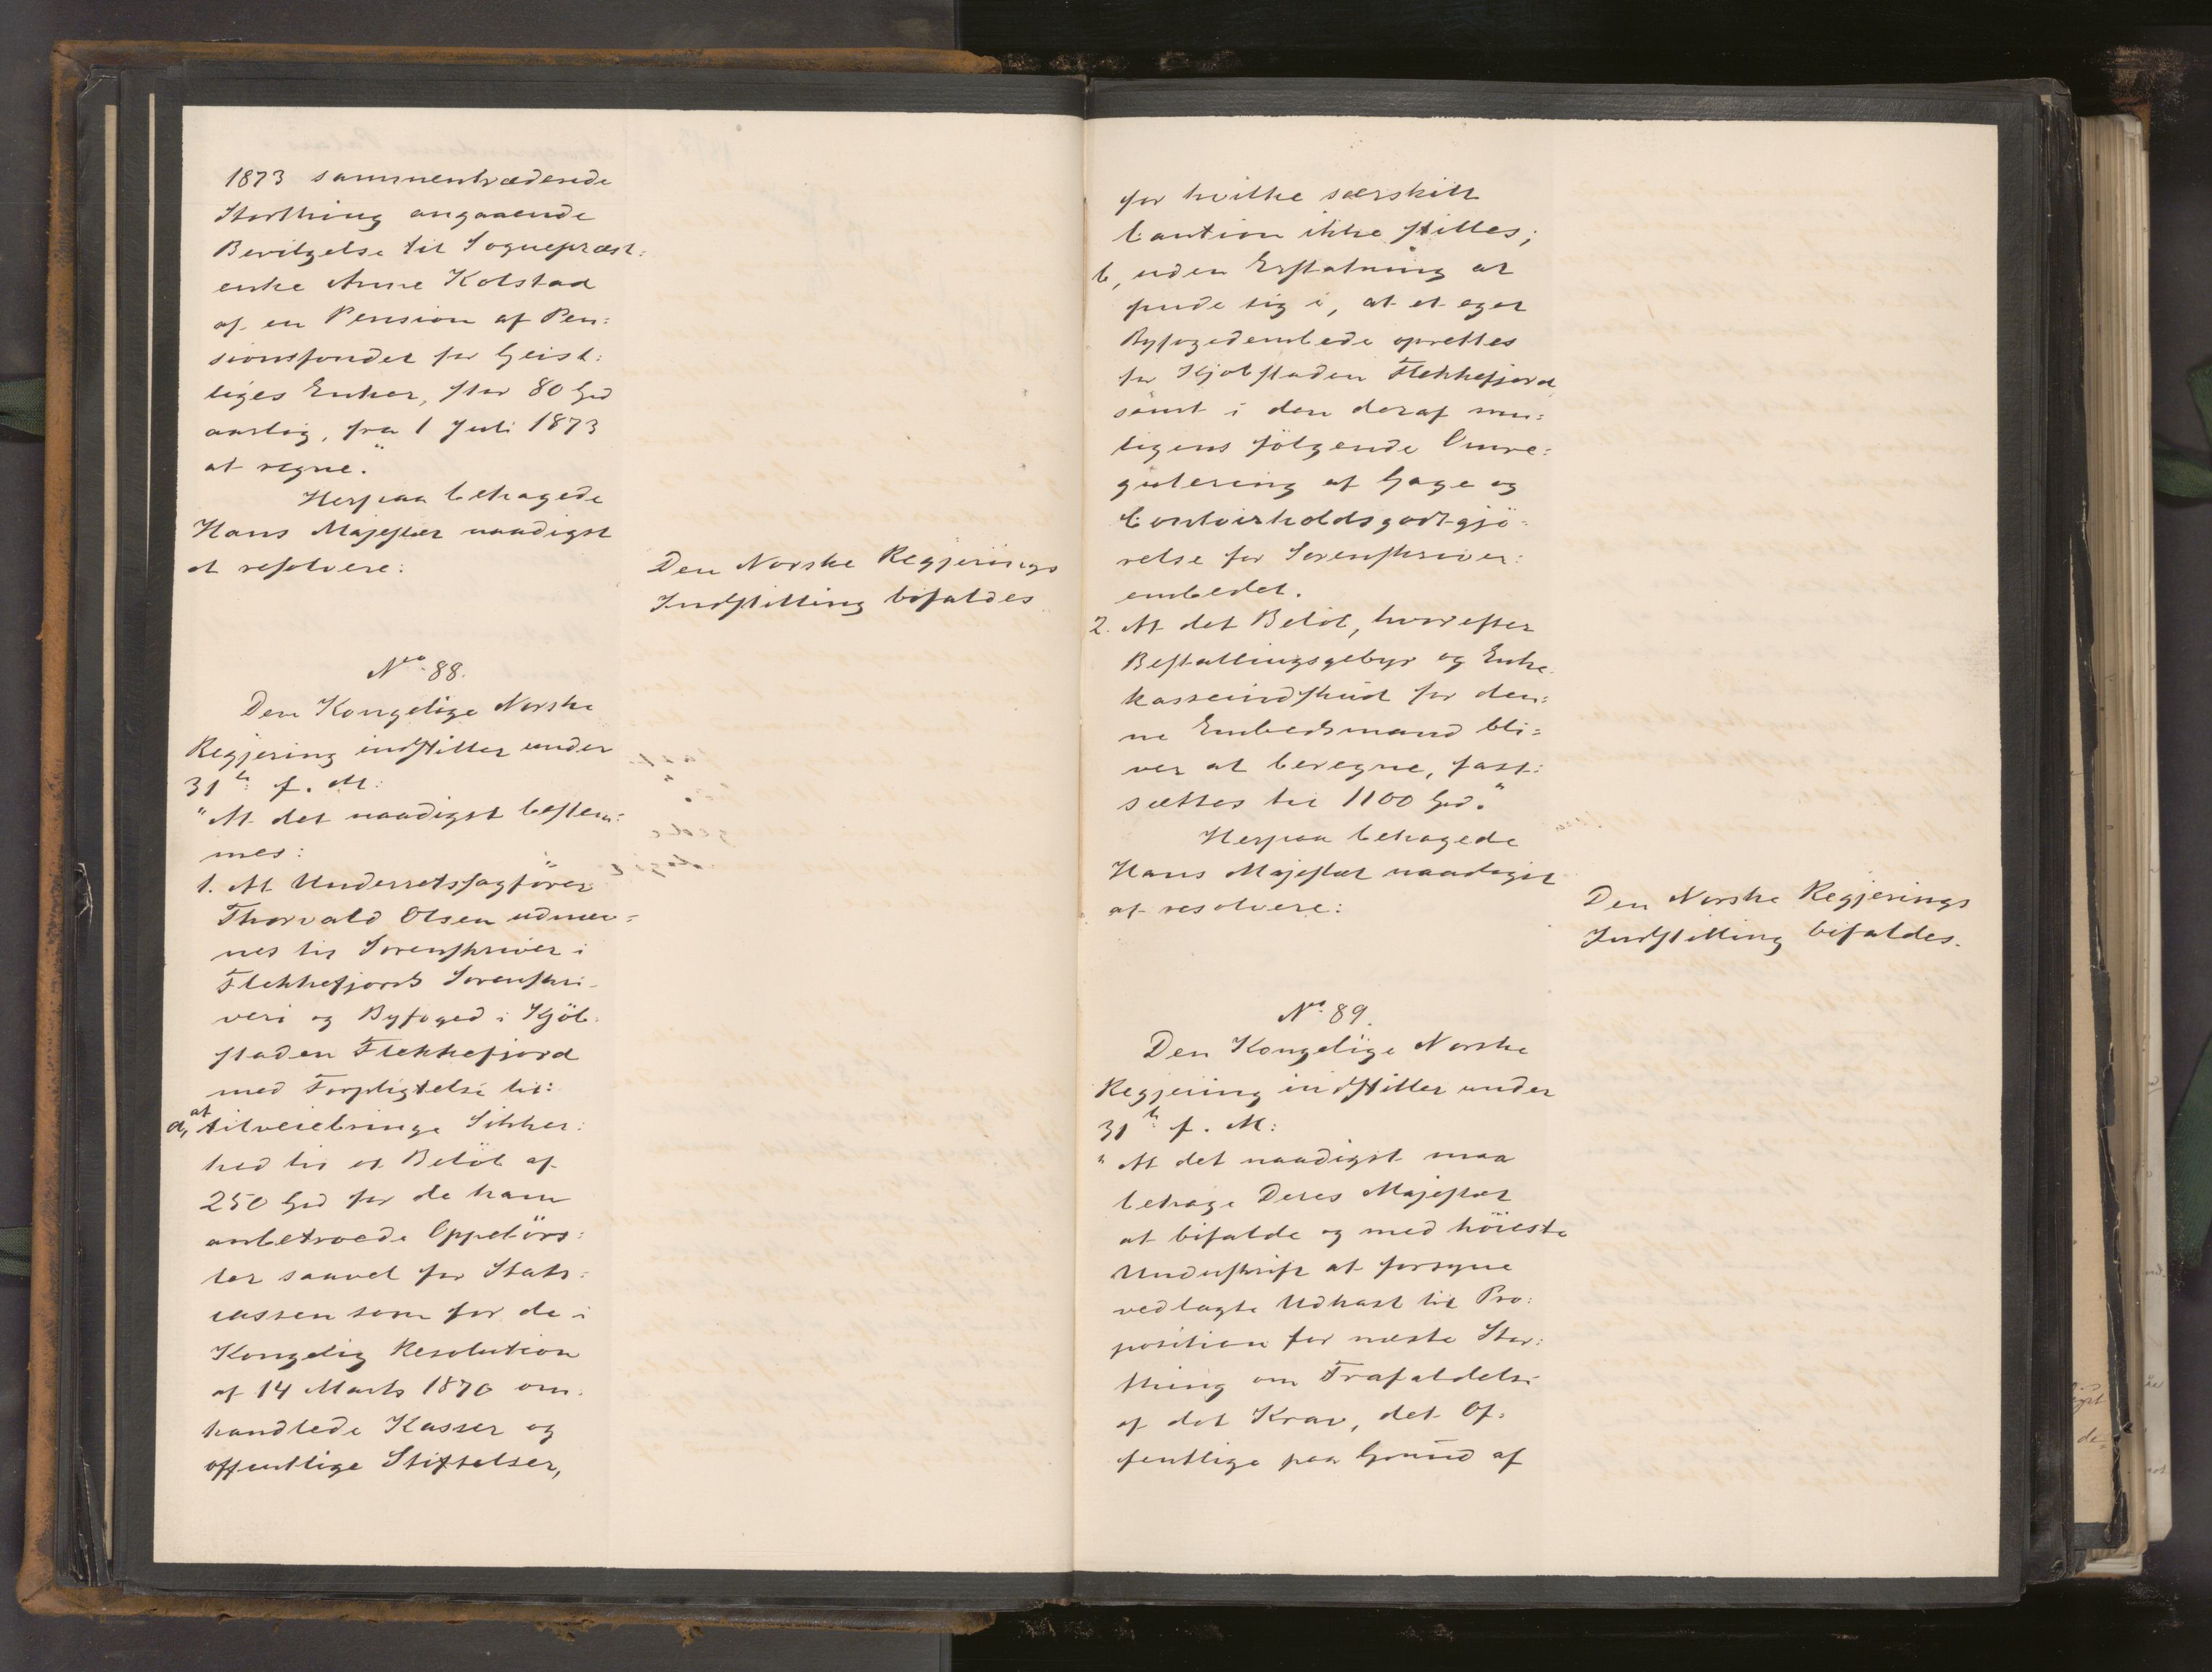 1873 sammentrædende
Storthing angaaende
Bevilgelse til Sognepræst:
enke Anne Kolstad
af en Pension af Pen:
sionsfondet for Geist:
liges Enker, stor 80 Spd
aarlig, fra 1 Juli 1873
at regne."
Herpaa behagede
Hans Majestæt naadigst
at resolvere:
Den Norske Regjerings
Indstilling bifaldes
No 88.
Den Kongelige Norske
Regjering indstiller under
31te f. M:
"At det naadigst bestem:
mes:
1. At Underretssagfører
Thorvald Olsen udnæv:
nes til Sorenskriver i
Flekkefjords Sorenskri-
veri og Byfoged i Kjöb-
staden Flekkefjord
med Forpligtelse til:
a, at tilveiebringe Sikker:
hed til et Belöb af
250 Spd for de ham
anbetroede Oppebörs:
ler saavel for Stats:
cassen som for de i
Kongelig Resolution
af 14 Marts 1870 om-
handlede Kasser og
offentlige Stiftelser,
for hvilke særskilt
Caution ikke stilles;
b, uden Erstatning at
finde sig i, at et eget
Byfogedembede oprettes
for Kjøbstaden Flekkefjord
samt i den deraf mu:
ligens fölgende Omre:
gulering af Gage og
Contoirholdsgodtgjö:
relse for Sorenskriver:
embedet.
2. At det Belöb, hvorefter
Bestallingsgebyr og Enke
kasseindskud for den:
ne Embedsmand bli:
ver at beregne, fast:
sættes til 1100 Spd."
Herpaa behagede
Hans Majestæt naadigst
at resolvere:
Den Norske Regjerings
Indstilling bifaldes.
No 89.
Den Kongelige Norske
Regjering indstiller under
31te f. M:
"At det naadigst maa
behage Deres Majestæt
at bifalde og med höieste
Underskrift at forsyne
vedlagte Udkast til Pro:
position for næste Stor:
thing om Frafaldelse
af det Krav, det Of:
fentlige paa Grund af